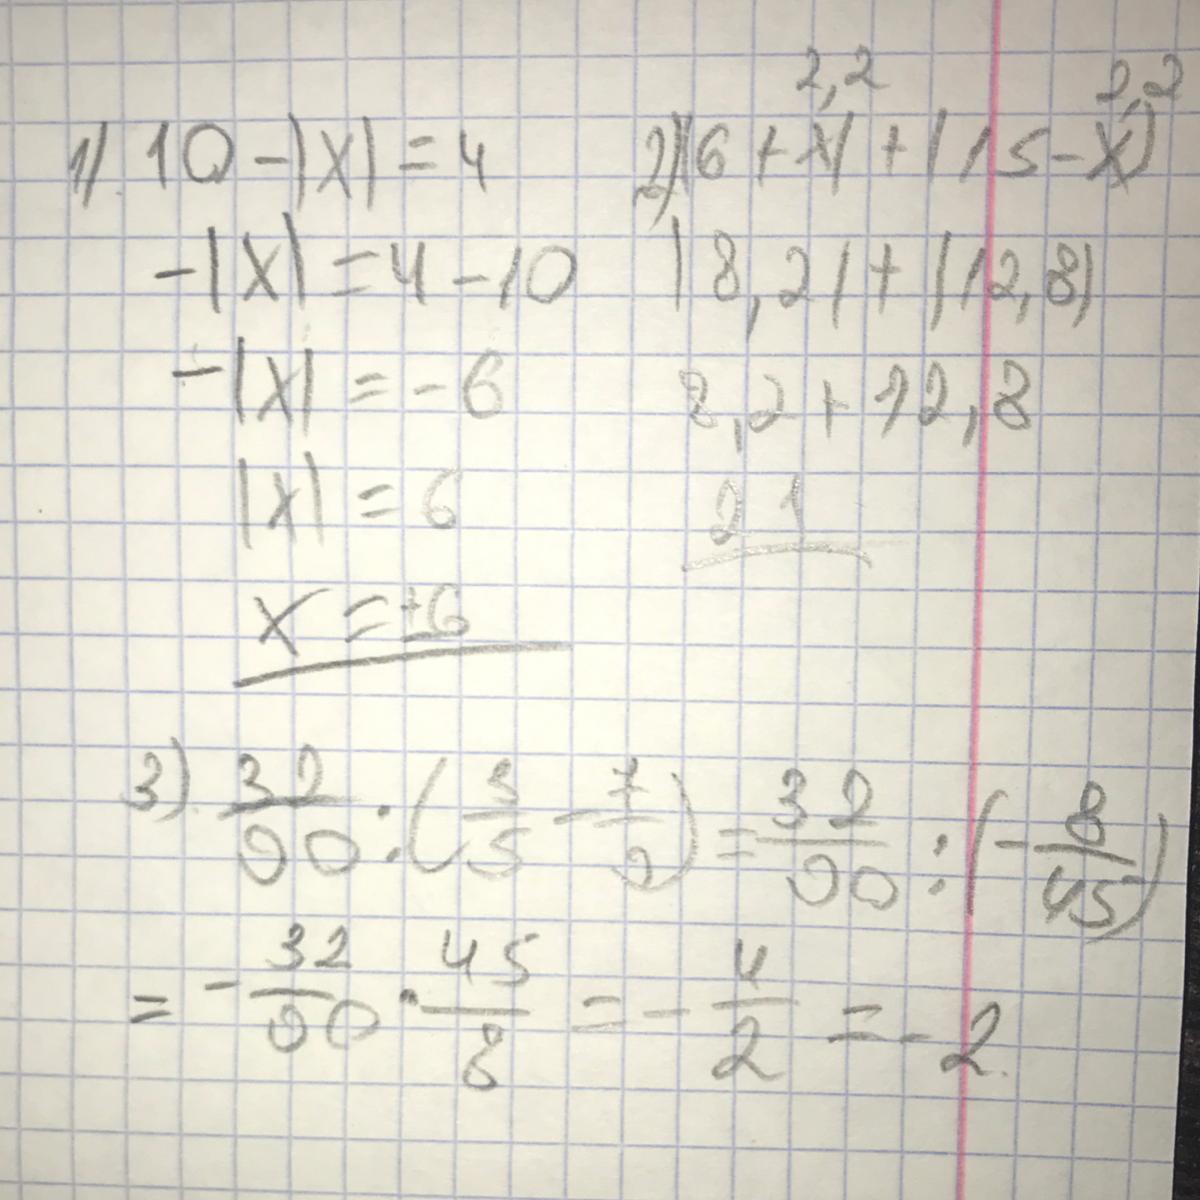 1) 10 - |x| = 4
-|x| = 4 - 10
-|x| = -6
|x| = 6
x = ±6
2,2 2,2
2) |6 + x| + |15 - x|
|8,2| + |12,8|
8,2 + 12,8
21
3) 32/90 : (3/5 - 7/9) = 32/90 : (-8/45)
= -32/90 · 45/8 = -4/2 = -2.